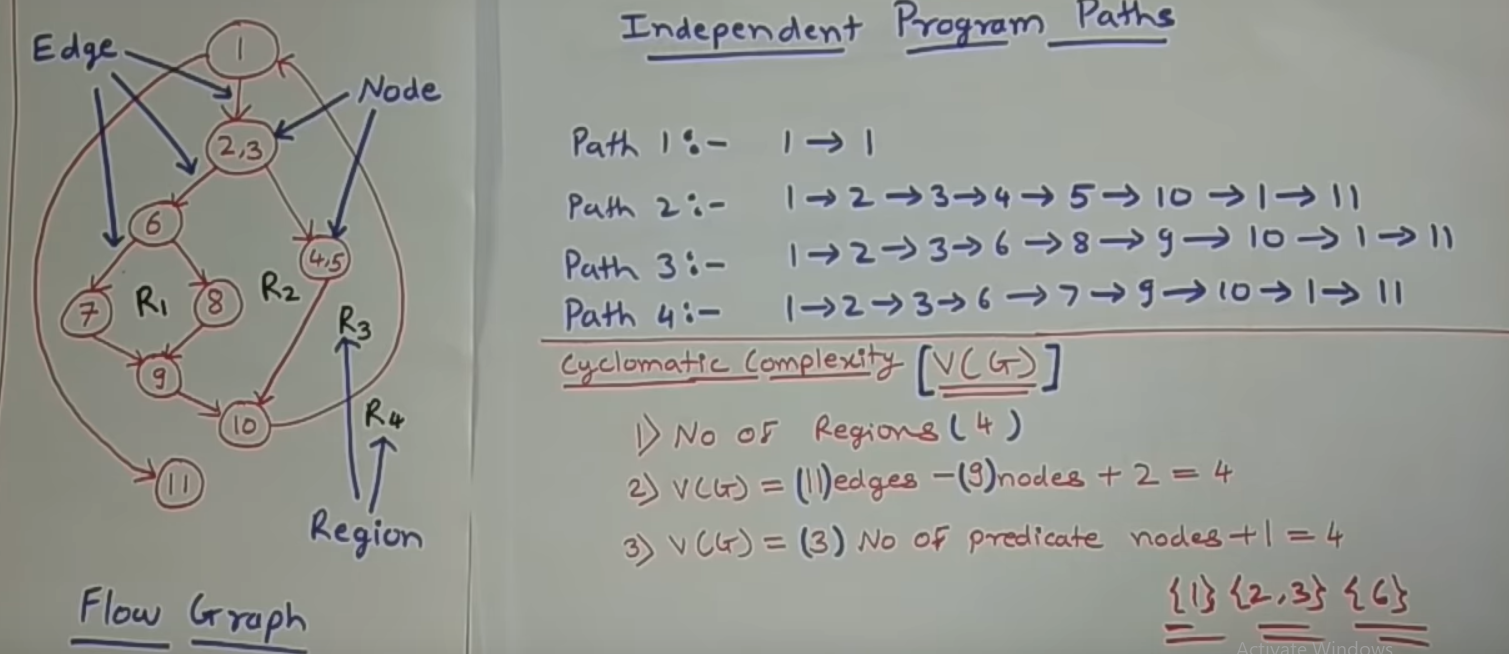 Edge
1
Node
2,3
6
4,5
7
R1
8
R2
R3
9
10
R4
11
Region
Flow Graph
Independent Program Paths
Path 1:- 1 → 1
Path 2:- 1 → 2 → 3 → 4 → 5 → 10 → 1 → 11
Path 3:- 1 → 2 → 3 → 6 → 8 → 9 → 10 → 1 → 11
Path 4:- 1 → 2 → 3 → 6 → 7 → 9 → 10 → 1 → 11
Cyclomatic Complexity [V(G)]
1) No of Regions (4)
2) V(G) = (11)edges -(9)nodes + 2 = 4
3) V(G) = (3) No of predicate nodes + 1 = 4
{1} {2,3} {6}
Activate Windows